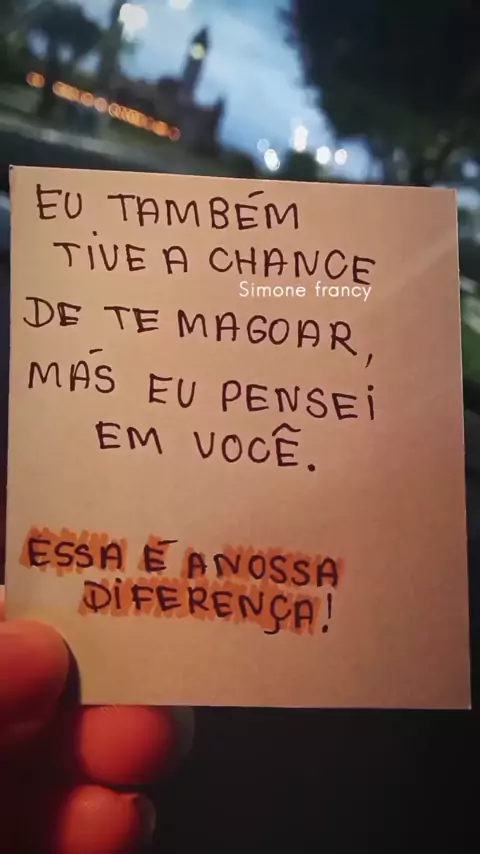 EU TAMBÉM
TIVE A CHANCE
Simone francy
DE TE MAGOAR,
MÁS EU PENSEI
EM VOCÊ.
ESSA É A NOSSA
DIFERENÇA!